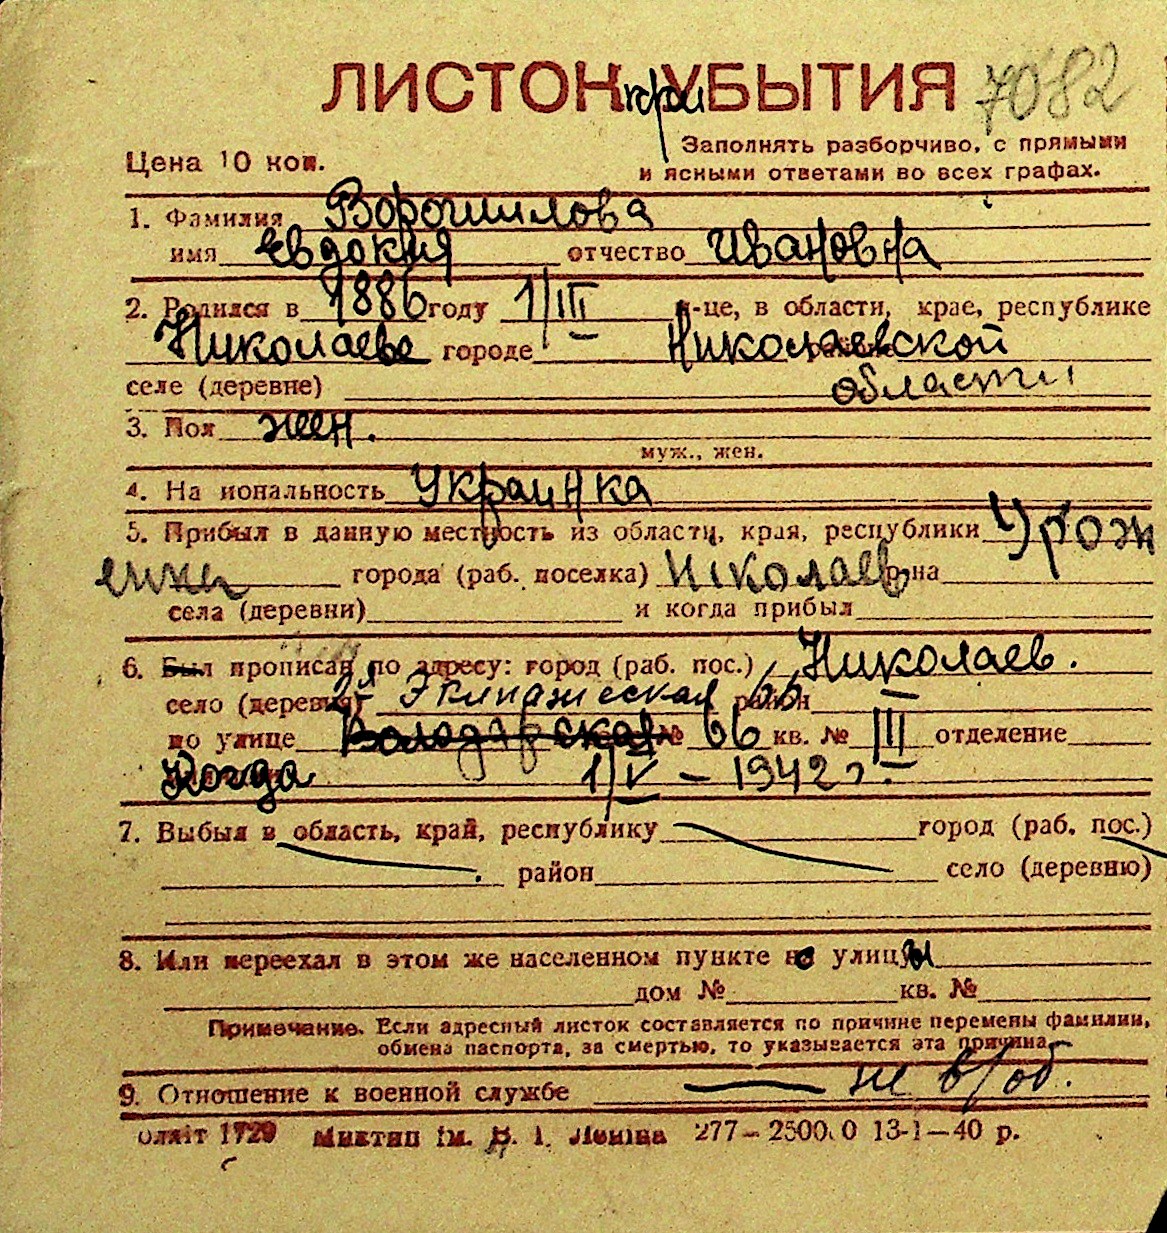 ЛИСТОК при УБЫТИЯ 7082
Цена 10 коп.
Заполнять разборчиво, с прямыми
и ясными ответами во всех графах.
1. Фамилия Ворошилова
имя Евдокия отчество Ивановна
2. Родился в 1886 году 1/III м-це, в области, крае, республике
Николаеве городе Николаевской
селе (деревне) области
3. Пол жен.
муж., жен.
4. На иональность Украинка
5. Прибыл в данную местность из области, края, республики Урож
енка города (раб. поселка) Николаев, р-на
села (деревни) и когда прибыл
6. Был прописан по адресу: город (раб. пос.) Николаев.
село (деревня) Экипажеская 66 район
по улице Володарская № 66 кв. № III отделение
Когда 1/V – 1942 г.
7. Выбыл в область, край, республику город (раб. пос.)
район село (деревню)
8. Или переехал в этом же населенном пункте не улицы
дом № кв. №
Примечание. Если адресный листок составляется по причине перемены фамилии,
обмена паспорта, за смертью, то указывается эта причина.
9. Отношение к военной службе — не в/об.
1720 ім. В. І. Леніна 277–2500.0 13-1–40 р.